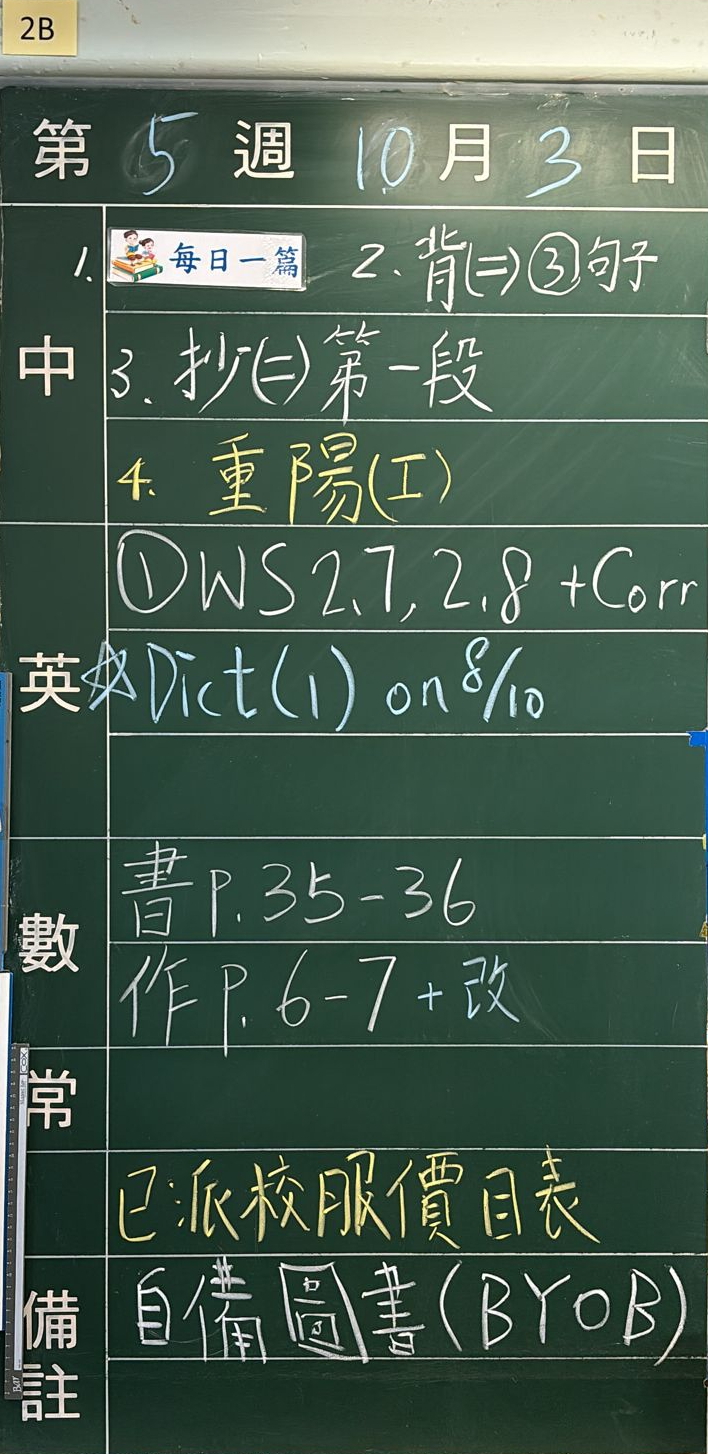 2B
第 5 週 10 月 3 日
1. 每日一篇 2. 背(二)③句子
中 3. 抄(二)第一段
4. 重陽(工)
①WS 2.7, 2.8 +Corr
英 ☆Dict(1) on 8/10
書 P. 35-36
數
作 P. 6-7 + 改
常
已派校服價目表
備註 自備圖書(BYOB)